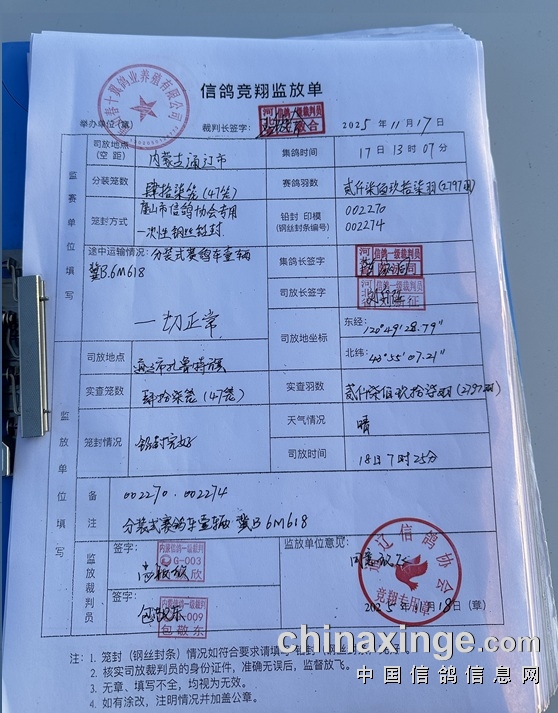 信鸽竞翔监放单
举办单位(章) 裁判长签字: 2025年11月17日
司放地点(空距) 内蒙古通辽市 集鸽时间 17日13时07分
分装笼数 肆拾柒笼(47笼) 赛鸽羽数 贰仟柒佰玖拾柒羽(2797羽)
笼封方式 唐山市信鸽协会专用一次性钢丝铅封 铅封 印模(钢丝封条编号) 002270 002274
途中运输情况: 分装式赛鸽车壹辆 冀B.6M618 一切正常
集鸽长签字
司放长签字
司放地坐标 东经: 120°49'28.79"
北纬: 43°55'07.21"
监赛单位填写
司放地点 通辽市扎鲁特旗
实查笼数 肆拾柒笼(47笼) 实查羽数 贰仟柒佰玖拾柒羽(2797羽)
笼封情况 铅封完好 天气情况 晴
司放时间 18日7时25分
监放单位填写
备注 002270.002274
分装式赛鸽车壹辆 冀B6M618
监放裁判员 签字: 监放单位意见: 同意放飞
内蒙信鸽一级裁判
G-003
签字: 包敬东
内蒙信鸽一级裁判
009
包敬东
通辽信鸽协会
竞翔专用章
2025年11月18日(章)
注: 1. 笼封(钢丝封条)情况如符合要求请填
2. 核实司放裁判员的身份证件，准确无误后，监督放飞。
3. 无章、填写不全，均视为无效。
4. 如有涂改，注明情况并加盖公章。
chinaxinge.com
中国信鸽信息网